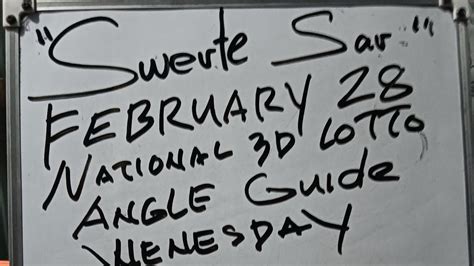 "Swerte Sar"
FEBRUARY 28
NATIONAL 3D LOTTO
ANGLE GUIDE
WENESDAY